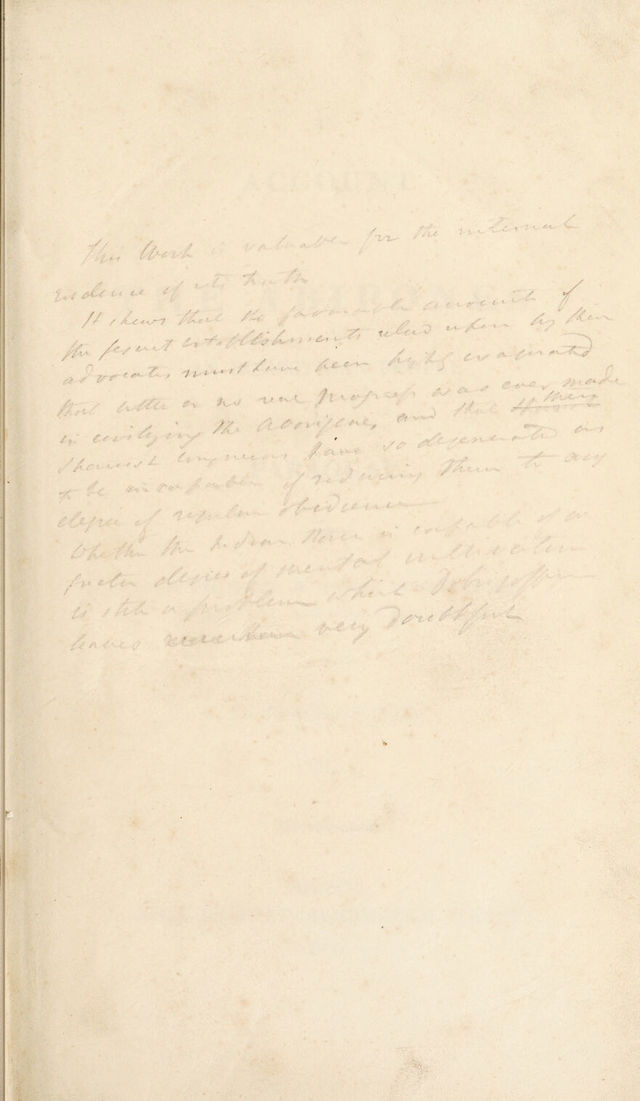 ACCOUNT
This Work is valuable for the internal
evidence of its truth
It shews that the favourable accounts of
the Jesuit establishments relied upon by their
advocates must have been highly exagerated
that little or no real progress was ever made
in civilizing the Aborigenes, and that
Spaniards have so degenerated as
to be incapable of reducing them to any
degree of regular obedience
Whether the Indian Race is capable of a
greater degree of mental cultivation
is still a problem which Dobrizhoffer
leaves very doubtful